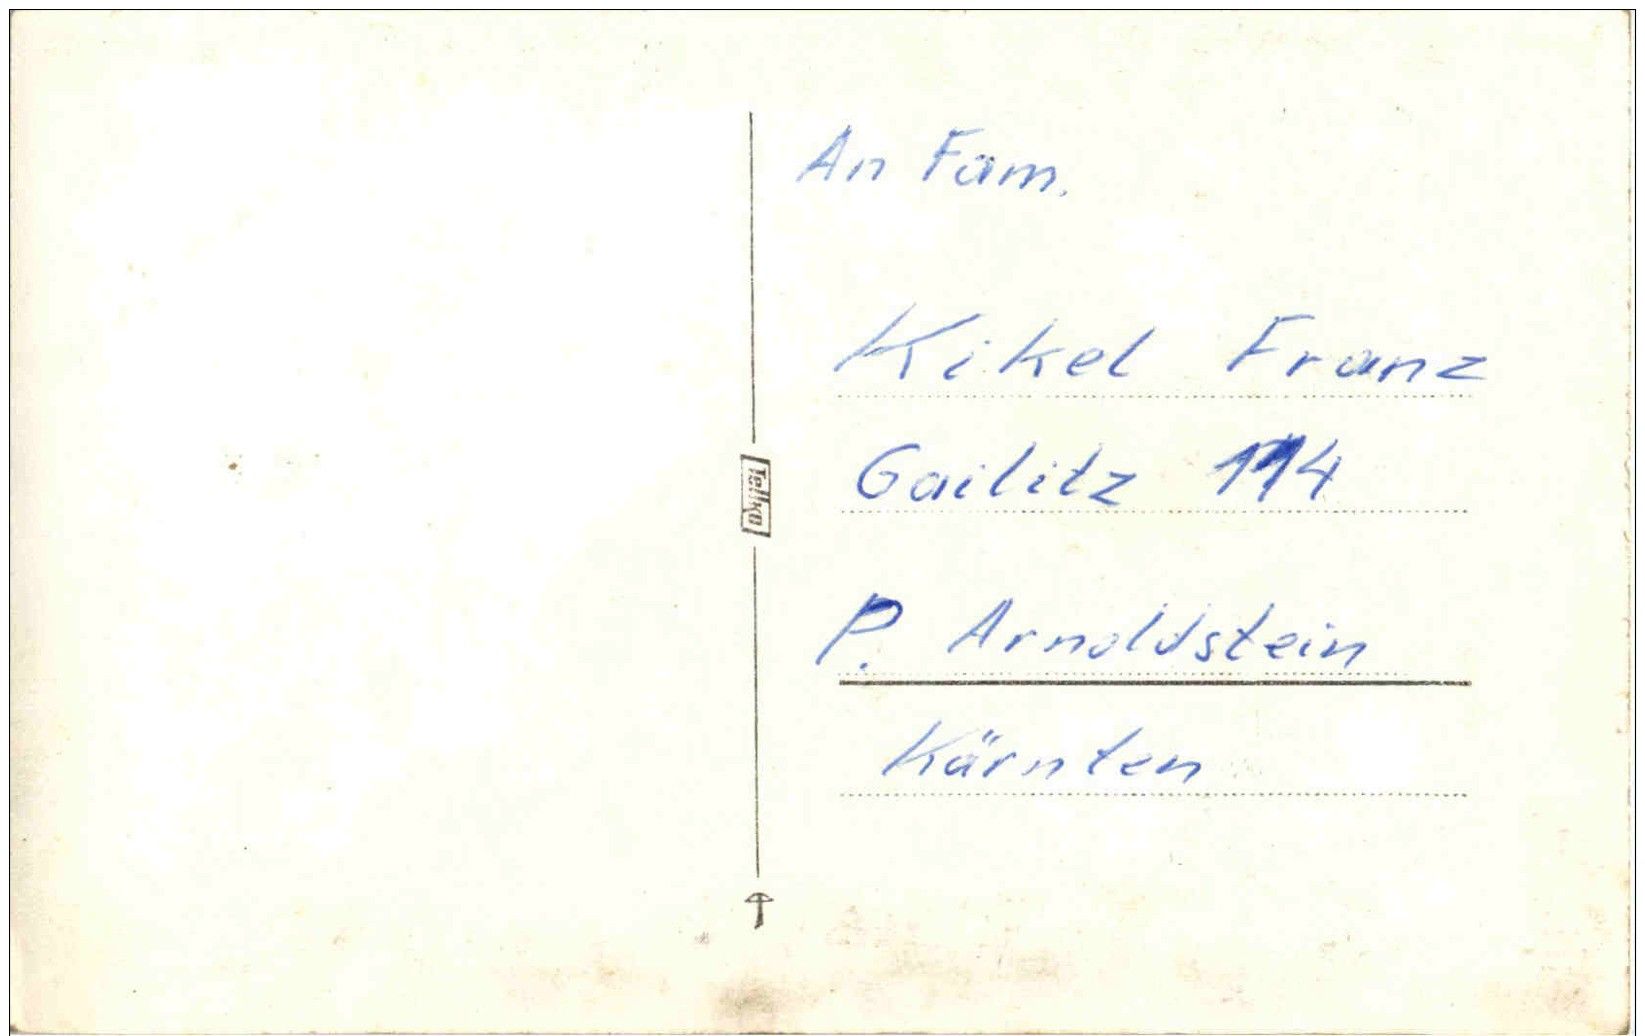 An Fam.
Kikel Franz
Gailitz 114
P. Arnoldstein
Kärnten
Tellko